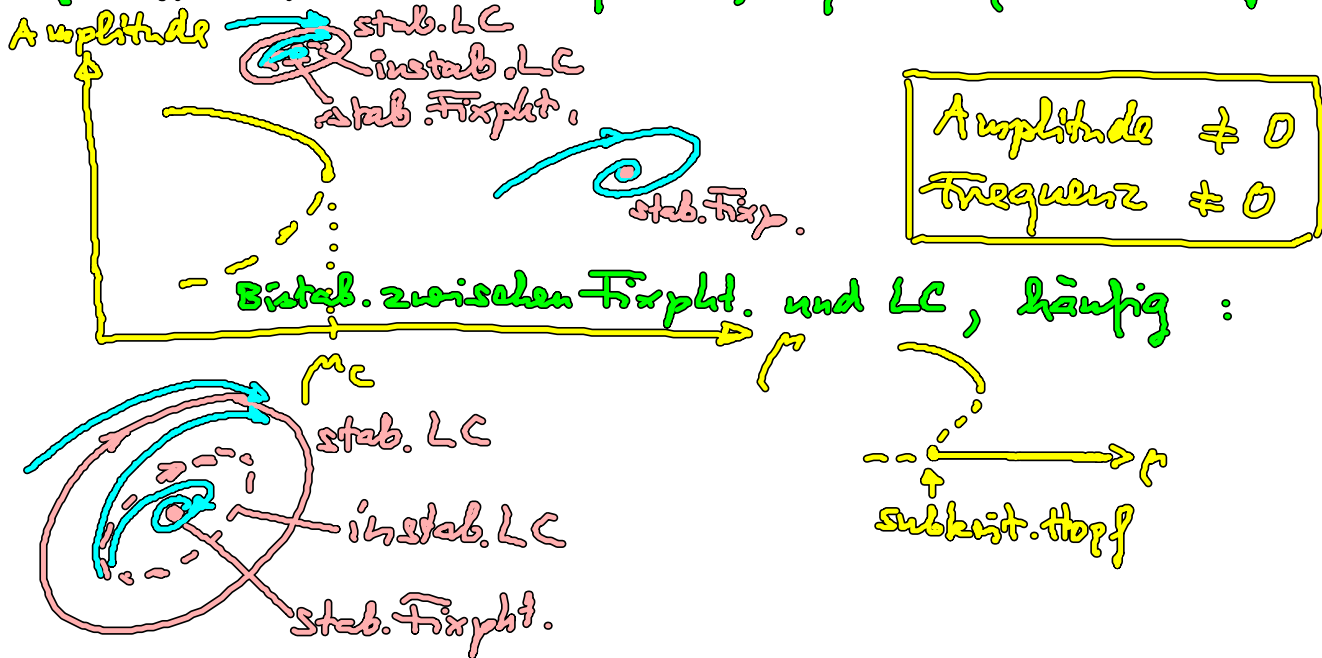 Amplitude
stab. LC
instab. LC
stab. Fixpkt.
stab. Fixp.
Amplitude ≠ 0
Frequenz ≠ 0
Bistab. zwischen Fixpkt. und LC, häufig :
μc
μ
stab. LC
instab. LC
stab. Fixpkt.
μ
subkrit. Hopf